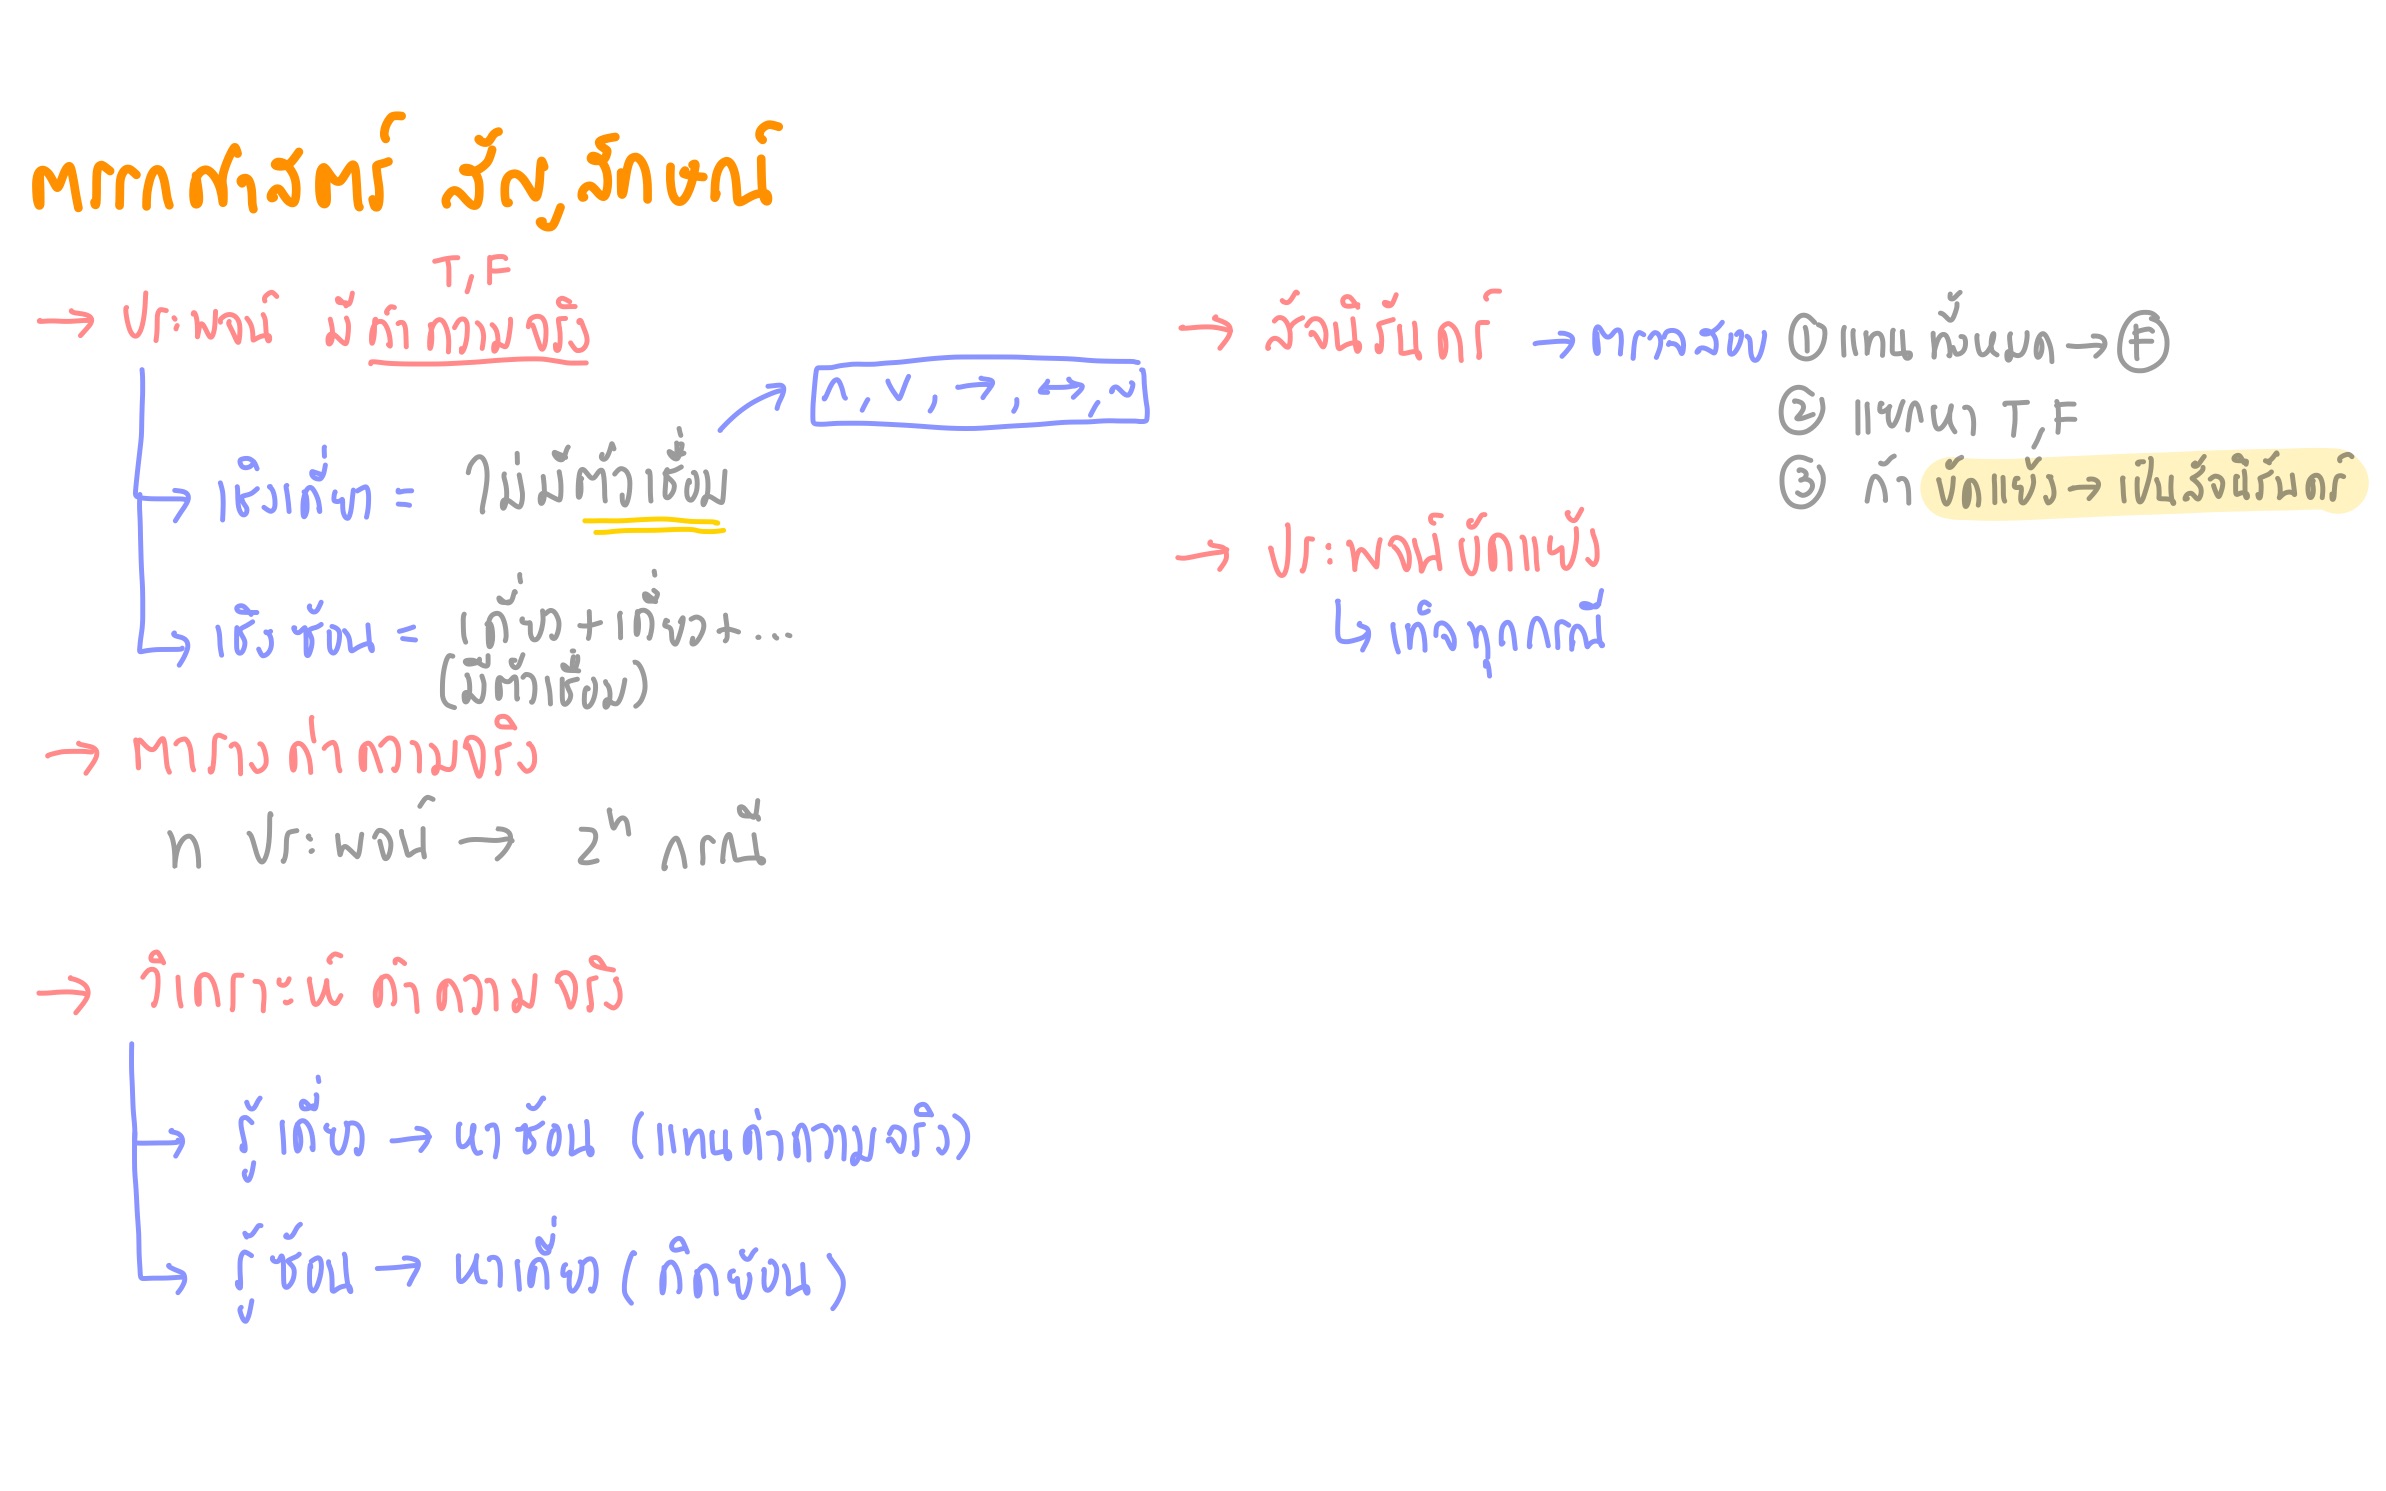 ตรรกศาสตร์ สัญลักษณ์
T, F
→ ประพจน์ มีค่าความจริง
∧, ∨, →, ↔, ~
เชิงเดี่ยว = ไม่มีตัวเชื่อม
เชิงซ้อน = เดี่ยว + เดี่ยว + ...
(มีตัวเชื่อม)
→ ตารางค่าความจริง
n ประพจน์ → 2ⁿ กรณี
→ วิเคราะห์ ค่าความจริง
รู้เดี่ยว → หาซ้อน (แทนค่าความจริง)
รู้ซ้อน → หาเดี่ยว (คิดย้อน)
→ สัจนิรันดร์ → ตรวจสอบ ① แทน ทั้งหมด → F
② แตกหา T, F
③ ถ้า ขัดแย้ง → เป็นสัจนิรันดร์
→ ประพจน์ขัดแย้ง
↳ เท็จทุกกรณี